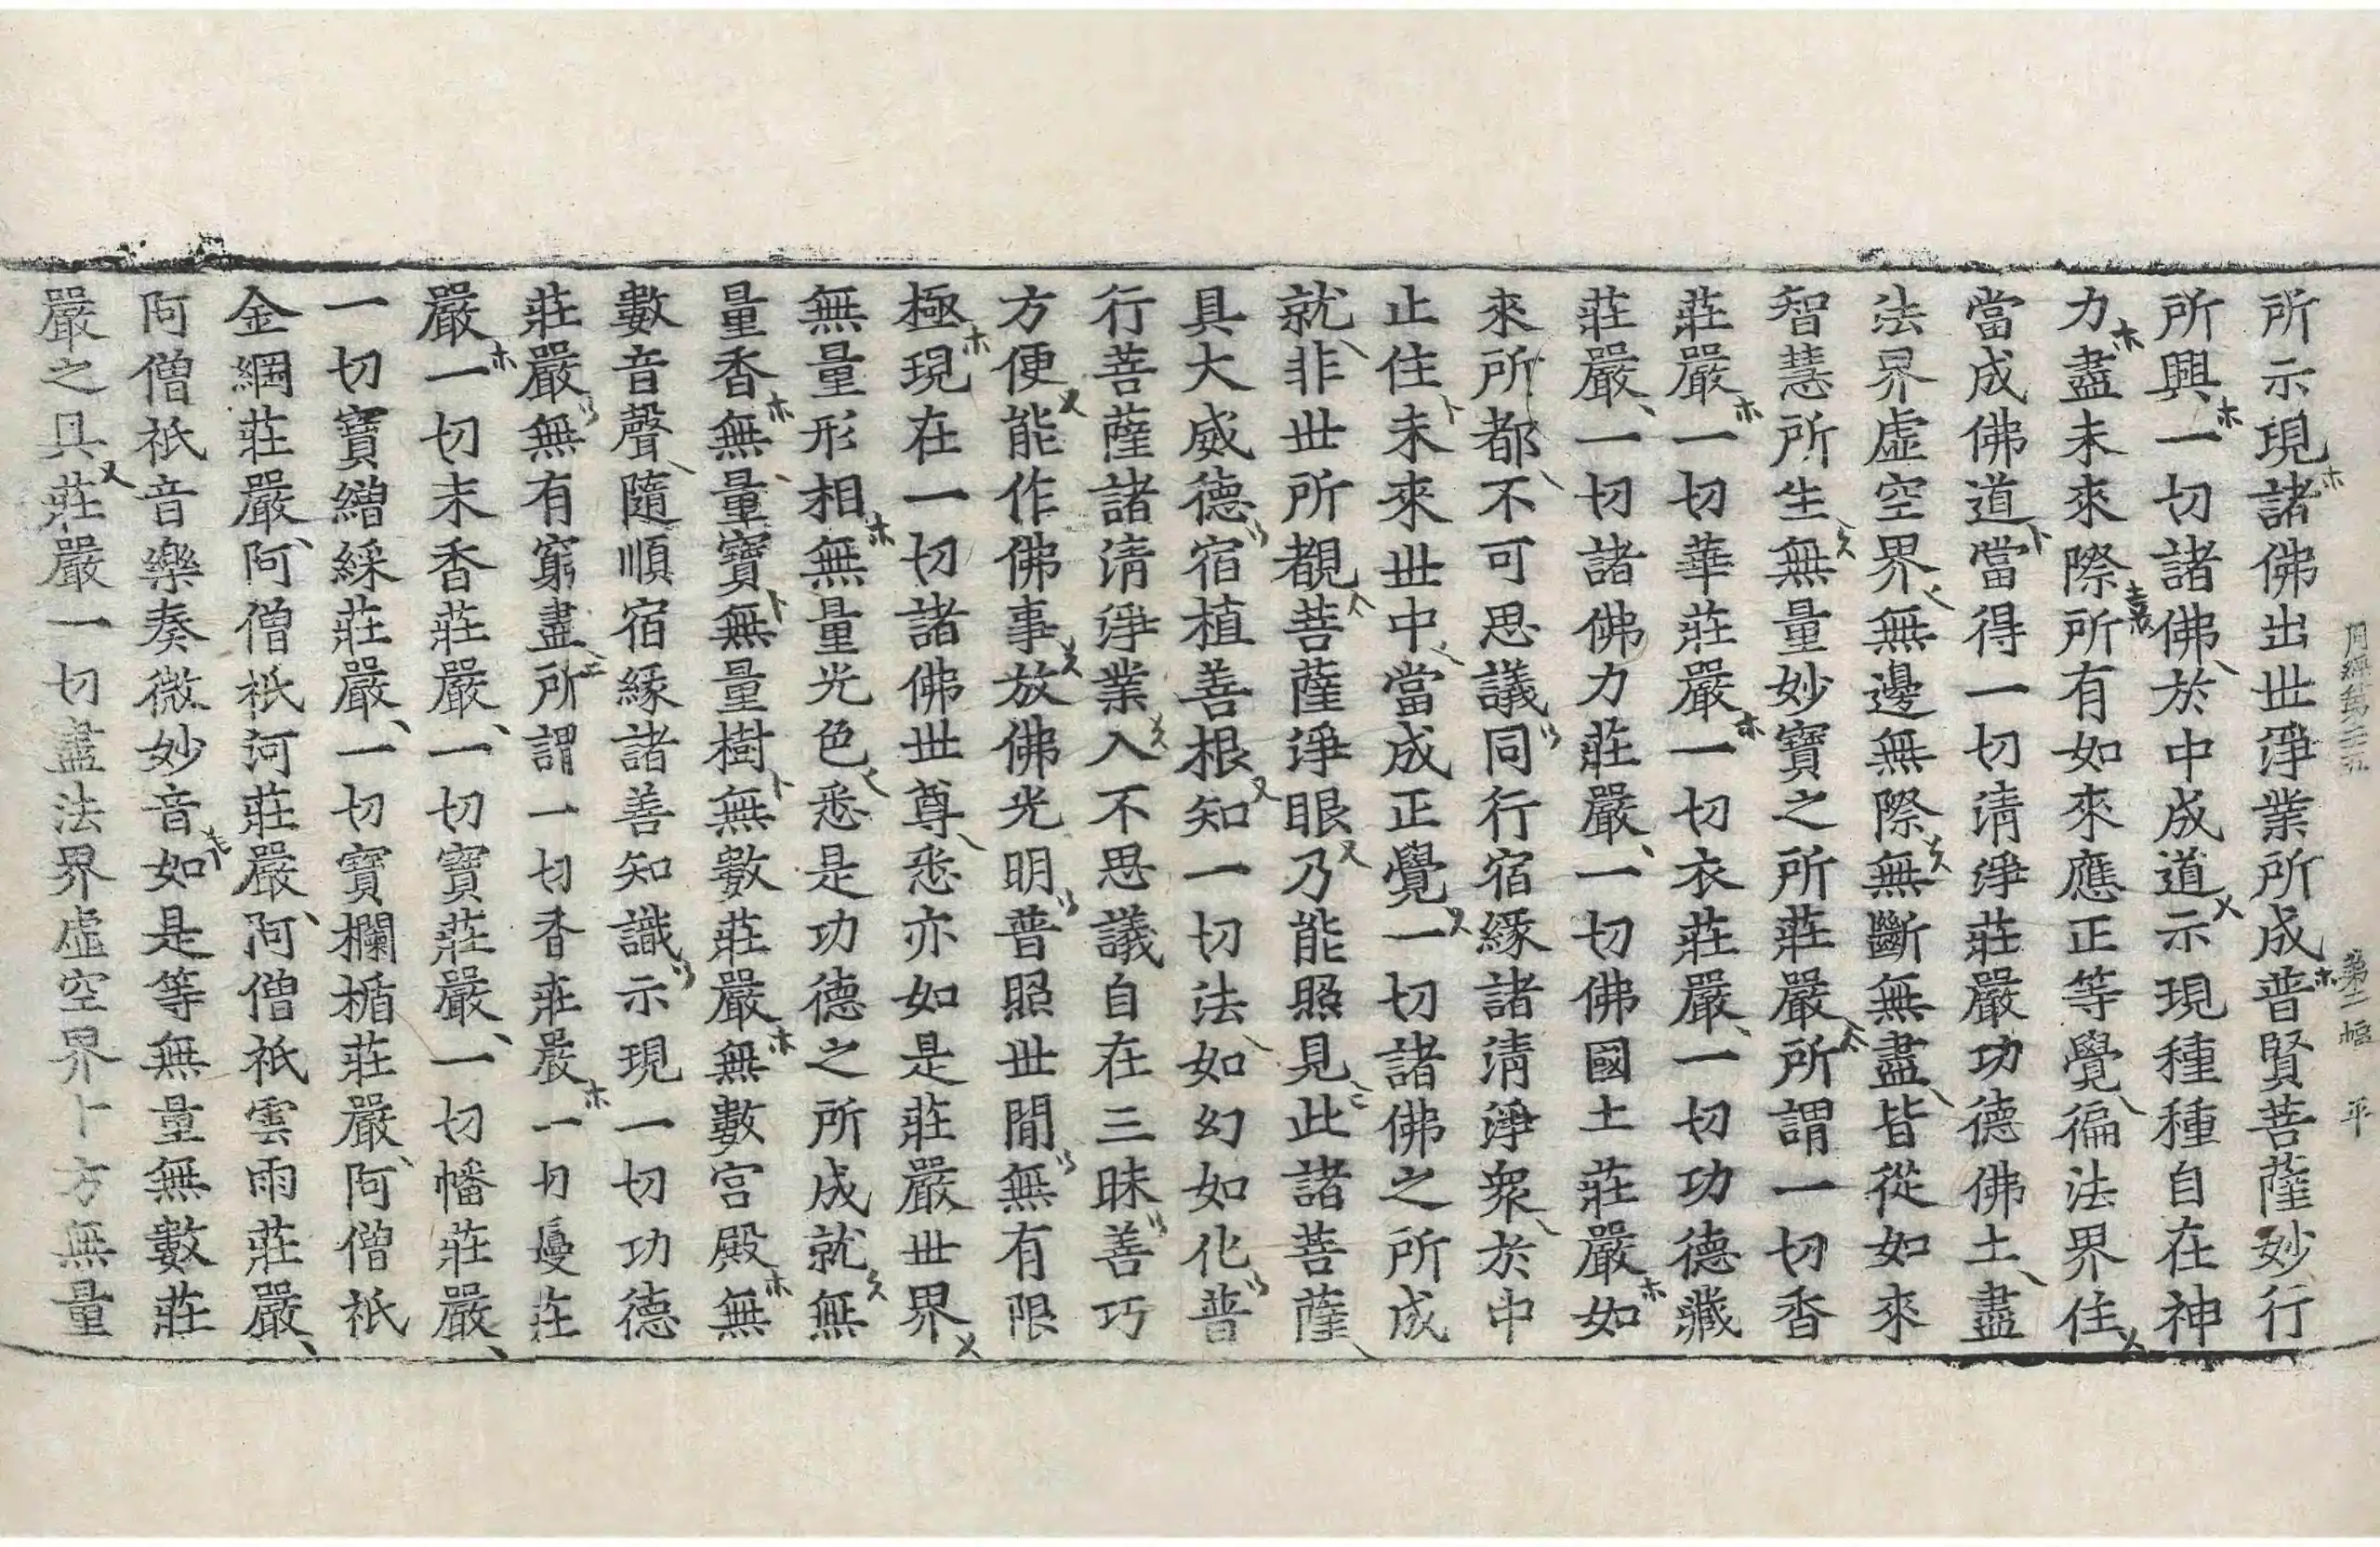 周經第二十五 第十一幅 平
所示現諸佛出世淨業所成普賢菩薩妙行
所興一切諸佛於中成道示現種種自在神
力盡未來際所有如來應正等覺徧法界住
當成佛道當得一切清淨莊嚴功德佛土盡
法界虛空界無邊無際無斷無盡皆從如來
智慧所生無量妙寶之所莊嚴所謂一切香
莊嚴一切華莊嚴一切衣莊嚴一切功德藏
莊嚴一切諸佛力莊嚴一切佛國土莊嚴如
來所都不可思議同行宿緣諸清淨衆於中
止住未來世中當成正覺一切諸佛之所成
就非世所覩菩薩淨眼乃能照見此諸菩薩
具大威德宿植善根知一切法如幻如化普
行菩薩諸清淨業入不思議自在三昧善巧
方便能作佛事放佛光明普照世間無有限
極現在一切諸佛世尊悉亦如是莊嚴世界
無量形相無量光色悉是功德之所成就無
量香無量寶無量樹無數莊嚴無數宮殿無
數音聲隨順宿緣諸善知識示現一切功德
莊嚴無有窮盡所謂一切香莊嚴一切鬘莊
嚴一切末香莊嚴一切寶莊嚴一切幡莊嚴
一切寶繒綵莊嚴一切寶欄楯莊嚴阿僧祇
金網莊嚴阿僧祇河莊嚴阿僧祇雲雨莊嚴
阿僧祇音樂奏微妙音如是等無量無數莊
嚴之具莊嚴一切盡法界虛空界十方無量